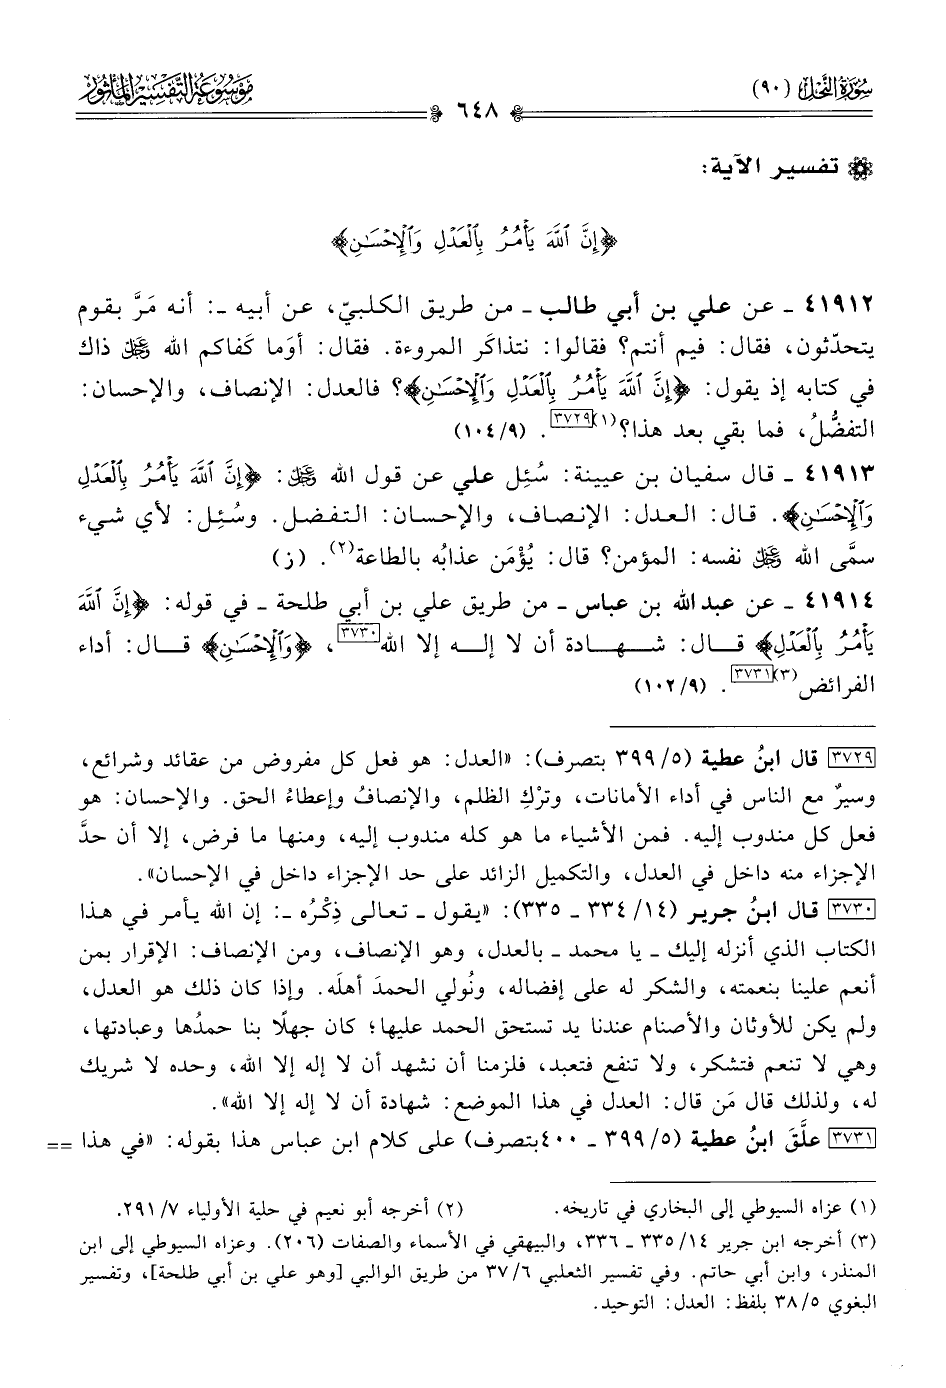 سُورَةُ النَّحْلِ (٩٠)
٦٤٨
مَوْسُوعَةُ التَّفْسِيرِ المَأْثُورِ
تفسير الآية:
﴿إِنَّ ٱللَّهَ يَأْمُرُ بِٱلْعَدْلِ وَٱلْإِحْسَـٰنِ﴾
٤١٩١٢ ـ عن علي بن أبي طالب ـ من طريق الكلبيّ، عن أبيه ـ: أنه مَرَّ بقوم
يتحدّثون، فقال: فيم أنتم؟ فقالوا: نتذاكَر المروءة. فقال: أوَما كَفاكم الله ﷿ ذاك
في كتابه إذ يقول: ﴿إِنَّ ٱللَّهَ يَأْمُرُ بِٱلْعَدْلِ وَٱلْإِحْسَـٰنِ﴾؟ فالعدل: الإنصاف، والإحسان:
التفضُّلُ، فما بقي بعد هذا؟(١)[٣٧٢٩]. (٩/ ١٠٤)
٤١٩١٣ ـ قال سفيان بن عيينة: سُئِل علي عن قول الله ﷿: ﴿إِنَّ ٱللَّهَ يَأْمُرُ بِٱلْعَدْلِ
وَٱلْإِحْسَـٰنِ﴾. قال: العدل: الإنصاف، والإحسان: التفضل. وسُئِل: لأي شيء
سمَّى الله ﷿ نفسه: المؤمن؟ قال: يُؤْمَن عذابُه بالطاعة(٢). (ز)
٤١٩١٤ ـ عن عبدالله بن عباس ـ من طريق علي بن أبي طلحة ـ في قوله: ﴿إِنَّ ٱللَّهَ
يَأْمُرُ بِٱلْعَدْلِ﴾ قال: شهادة أن لا إله إلا الله[٣٧٣٠]، ﴿وَٱلْإِحْسَـٰنِ﴾ قال: أداء
الفرائض(٣)[٣٧٣١]. (٩/ ١٠٢)
[٣٧٢٩] قال ابنُ عطية (٥/ ٣٩٩ بتصرف): «العدل: هو فعل كل مفروض من عقائد وشرائع،
وسيرٌ مع الناس في أداء الأمانات، وترْكِ الظلم، والإنصافُ وإعطاءُ الحق. والإحسان: هو
فعل كل مندوب إليه. فمن الأشياء ما هو كله مندوب إليه، ومنها ما فرض، إلا أن حدَّ
الإجزاء منه داخل في العدل، والتكميل الزائد على حد الإجزاء داخل في الإحسان».
[٣٧٣٠] قال ابنُ جرير (١٤/ ٣٣٤ ـ ٣٣٥): «يقول ـ تعالى ذِكْرُه ـ: إن الله يأمر في هذا
الكتاب الذي أنزله إليك ـ يا محمد ـ بالعدل، وهو الإنصاف، ومن الإنصاف: الإقرار بمن
أنعم علينا بنعمته، والشكر له على إفضاله، ونُولي الحمدَ أهلَه. وإذا كان ذلك هو العدل،
ولم يكن للأوثان والأصنام عندنا يد تستحق الحمد عليها؛ كان جهلًا بنا حمدُها وعبادتها،
وهي لا تنعم فتشكر، ولا تنفع فتعبد، فلزمنا أن نشهد أن لا إله إلا الله، وحده لا شريك
له، ولذلك قال مَن قال: العدل في هذا الموضع: شهادة أن لا إله إلا الله».
[٣٧٣١] علَّقَ ابنُ عطية (٥/ ٣٩٩ ـ ٤٠٠بتصرف) على كلام ابن عباس هذا بقوله: «في هذا ==
(١) عزاه السيوطي إلى البخاري في تاريخه. (٢) أخرجه أبو نعيم في حلية الأولياء ٧/ ٢٩١.
(٣) أخرجه ابن جرير ١٤/ ٣٣٥ ـ ٣٣٦، والبيهقي في الأسماء والصفات (٢٠٦). وعزاه السيوطي إلى ابن
المنذر، وابن أبي حاتم. وفي تفسير الثعلبي ٦/ ٣٧ من طريق الوالبي [وهو علي بن أبي طلحة]، وتفسير
البغوي ٥/ ٣٨ بلفظ: العدل: التوحيد.